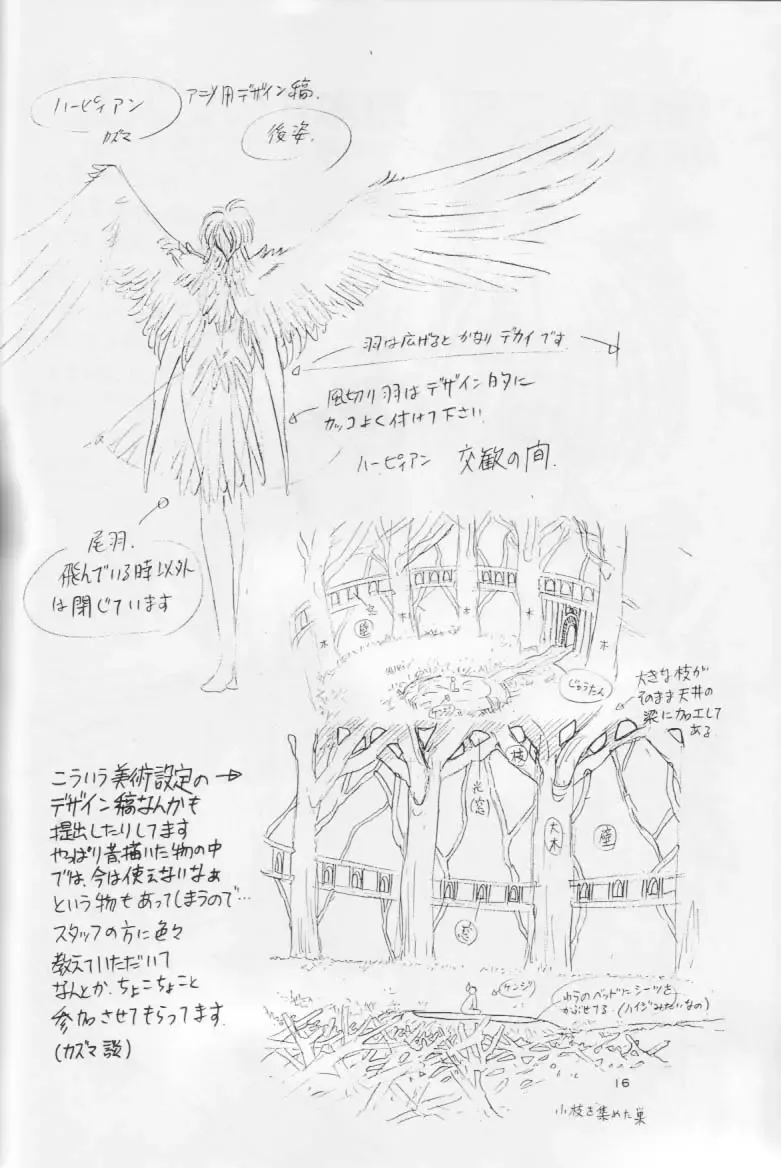 ハーピィアン
カズマ
アニメ用デザイン稿.
後姿.
羽は広げると かなり デカイです
風切り羽はデザイン的に
カッコよく付けて下さい.
ハーピィアン 交歓の間.
尾羽.
飛んでいる時以外
は閉じています
窓
壁
木
木
木
木
じゅうたん
ケンジ
大きな枝が
そのまま天井の
梁に加工して
ある
枝
光
(窓)
大木
壁
窓
こういう美術設定の→
デザイン稿なんかも
提出したりしてます
やっぱり昔描いた物の中
では、今は使えないなぁ
という物もあってしまうので…
スタッフの方に色々
教えていただいて
なんとか、ちょこちょこと
参加させてもらってます.
(カズマ談)
ケンジ
わらのベッドにシーツを
かぶせてる.(ハイジみたいなの)
16
小枝を集めた巣